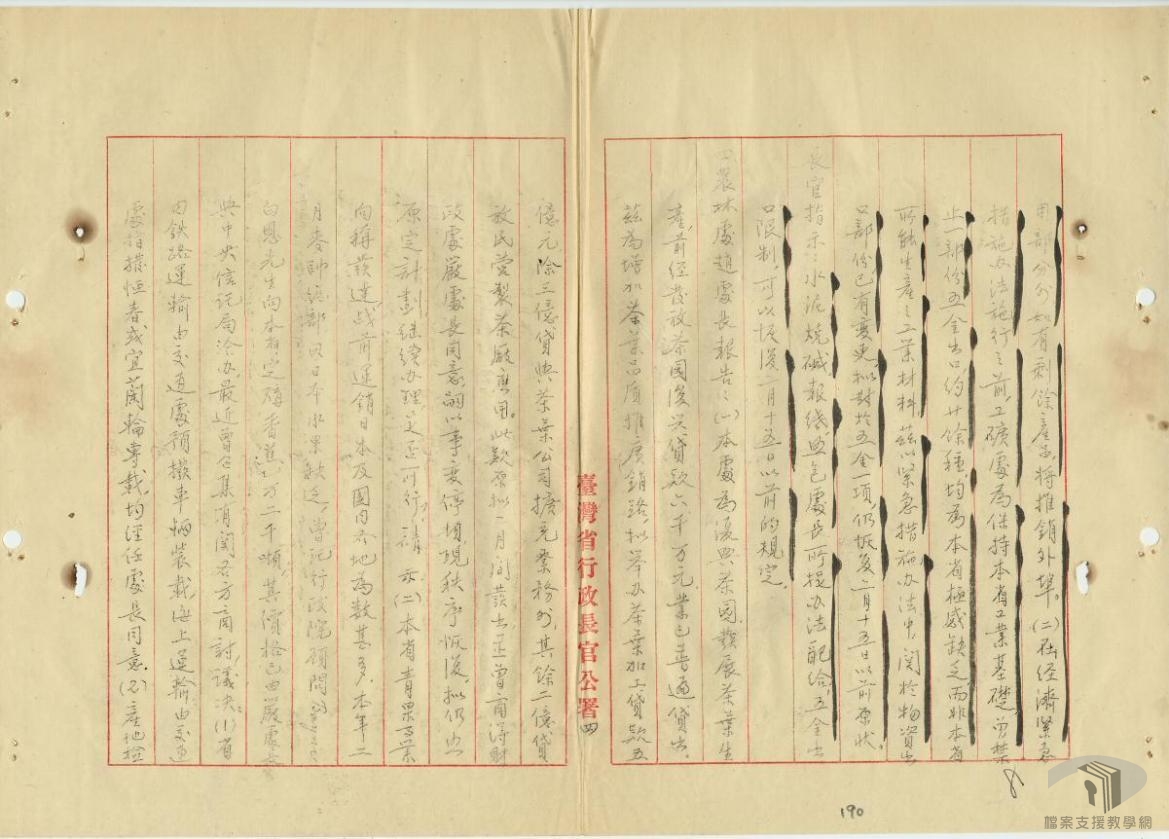 用部分外如有剩餘產品,將推銷外埠。(二)在經濟緊急
措施办法施行之前,工礦處為保持本省工業基礎,曾禁
止一部份五金出口約廿餘種,均為本省極感缺乏而非本省
所能生產之工業材料,茲以緊急措施办法中,関於物資出
口部份已有變更,拟對於五金一項,仍恢复二月十五日以前原狀。
長官指示:水泥燒碱報紙照包處長所提办法配給,五金出
口限制,可以恢復二月十五日以前的規定。
農林處趙處長報告:(一)本處為復興茶園,發展茶葉生
產,前經發放茶園復兴貸款六千万元業已普遍貸出。
茲為增加茶葉品質推广銷路,拟举办茶葉加工貸款五
臺灣省行政長官公署
四
億元除三億貸與茶葉公司擴充業務外,其餘二億貸
放民营製茶廠應用。此款原拟一月間發出並曾商得財
政處嚴處長同意,嗣以事变停頓,現秩序恢復,拟仍照
原定計劃继續办理,是否可行,請示。(二)本省青果事業
向稱發達,战前運銷日本及國内各地為数甚多,本年二
月麥帥總部因日本水果缺乏,曾託行政院顧問
白恩先生向本省定購香蕉一万二千噸,其價格已由嚴處長
與中央信託局洽办。最近曾召集有関各方商討,議决:(1)省
内鉄路運輸由交通處預撥車輛裝載,海上運輸由交通
處指撥恒春或宜蘭輪專載,均經任處長同意,(2)產地檢
190
檔案支援教學網